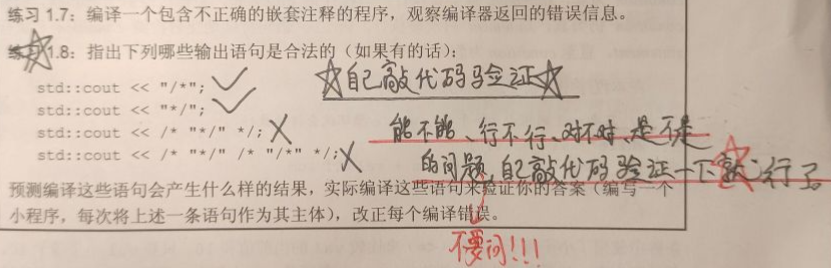 练习 1.7：编译一个包含不正确的嵌套注释的程序，观察编译器返回的错误信息。
练习 1.8：指出下列哪些输出语句是合法的（如果有的话）：
std::cout << "/*";
☆自己敲代码验证☆
std::cout << "*/";
std::cout << /* "*/" */;
能不能、行不行、对不对、是不是
std::cout << /* "*/" /* "/*" */;
的问题，自己敲代码验证一下就行了
预测编译这些语句会产生什么样的结果，实际编译这些语句来验证你的答案（编写一个
小程序，每次将上述一条语句作为其主体），改正每个编译错误。
不要问!!!